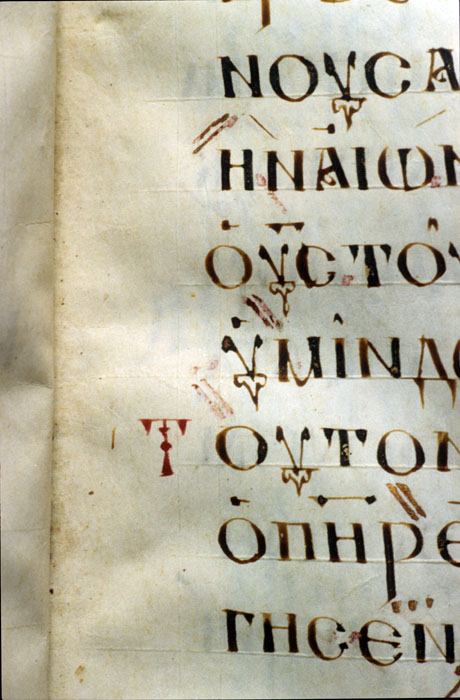 ΝΟΥСΑ
ΗΝΑΙΩΝ
ΟΥСΤΟΥ
ΥΜΙΝΔΩ
ΤΟΥΤΟΝ
ΟΠΗΡΕ
ΓΗСΕΝ